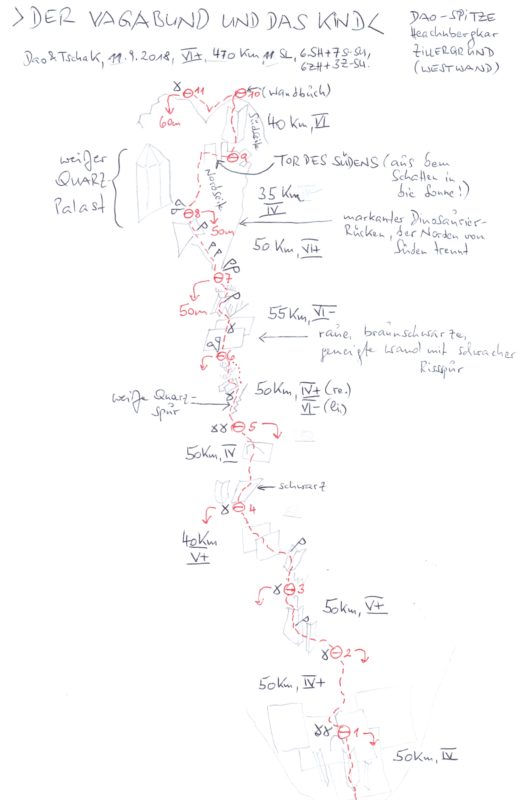 >DER VAGABUND UND DAS KIND<
DAO-SPITZE
ZILLERGRUND
(WESTWAND)
Dao & Tschak, 11.9.2018, VI+, 470 Km, 11 SL,
11
60m
10 (Wandbuch)
40 Km, VI
Südseite
9
TOR DES SÜDENS (aus dem
Schatten in
die Sonne!)
weißer
QUARZ-
Palast
Nordseite
8
50m
35 Km
IV
markanter Dinosaurier-
Rücken, der Norden von
Süden trennt
50 Km, VI+
7
50m
55 Km, VI-
raue, braunschwarze,
geneigte Wand mit schwacher
Rissspur
6
50 Km, IV+ (re.)
VI- (li)
weiße Quarz-
spur
5
50 Km, IV
schwarz
4
40 Km
V+
3
50 Km, V+
2
50 Km, IV+
1
50 Km, IV